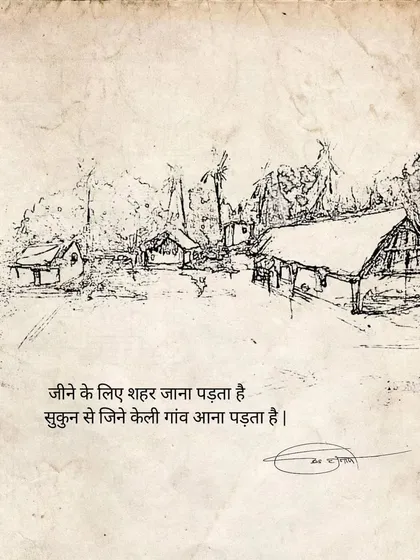 जीने के लिए शहर जाना पड़ता है
सुकुन से जिने केली गांव आना पड़ता है |